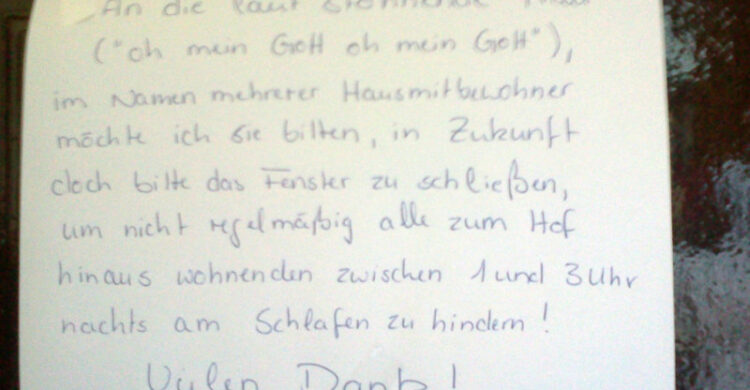 An die laut stöhnende Frau
("oh mein Gott oh mein Gott"),
im Namen mehrerer Hausmitbewohner
möchte ich Sie bitten, in Zukunft
doch bitte das Fenster zu schließen,
um nicht regelmäßig alle zum Hof
hinaus wohnenden zwischen 1 und 3 Uhr
nachts am Schlafen zu hindern!
Vielen Dank!